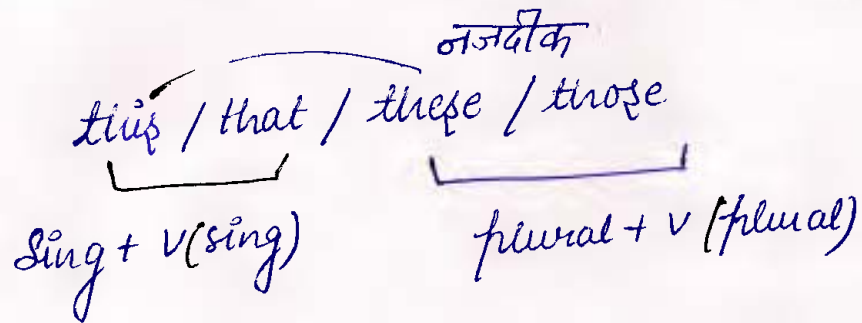 नजदीक
this / that / these / those
Sing + V(sing) plural + V (plural)